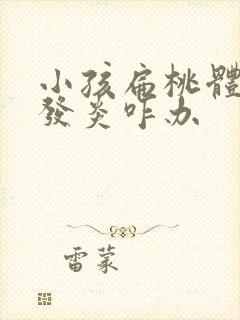 小孩扁桃體
發炎咋办
雷蒙